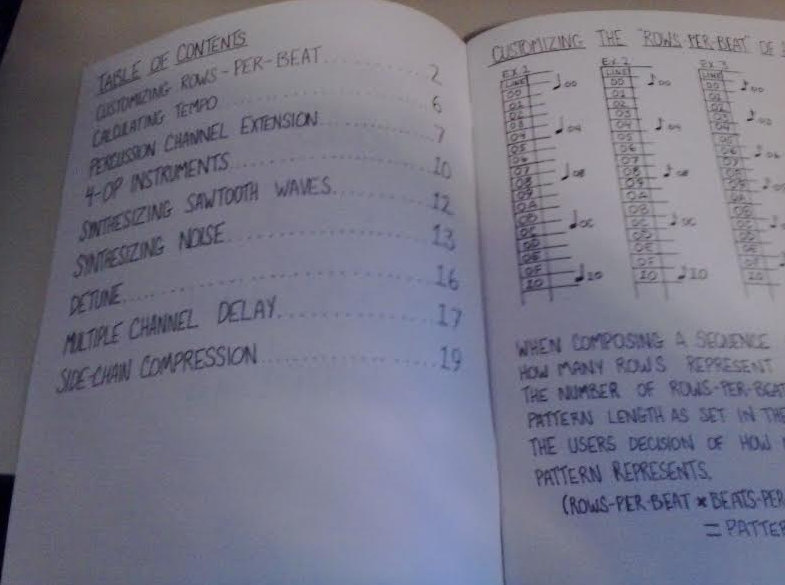 TABLE OF CONTENTS
CUSTOMIZING ROWS-PER-BEAT 2
CALCULATING TEMPO 6
PERCUSSION CHANNEL EXTENSION 7
4-OP INSTRUMENTS 10
SYNTHESIZING SAWTOOTH WAVES 12
SYNTHESIZING NOISE 13
DETUNE 16
MULTIPLE CHANNEL DELAY 17
SIDE-CHAIN COMPRESSION 19
CUSTOMIZING THE "ROWS-PER-BEAT" OF
EX. 1 EX. 2 EX. 3
LINE LINE LINE
00 00 00
01 01 01
02 02 02
03 03 03
04 04 04
05 05
06 06 06
07 07 07
08 08 08
09 09 09
0A 0A 0A
0B 0B 0B
0C 0C 0C
0D 0D 0D
0E 0E 0E
0F 0F 0F
10 10 10
WHEN COMPOSING A SEQUENCE
HOW MANY ROWS REPRESENT
THE NUMBER OF ROWS-PER-BEAT
PATTERN LENGTH AS SET IN THE
THE USERS DECISION OF HOW
PATTERN REPRESENTS.
(ROWS-PER-BEAT * BEATS-PER
= PATTER